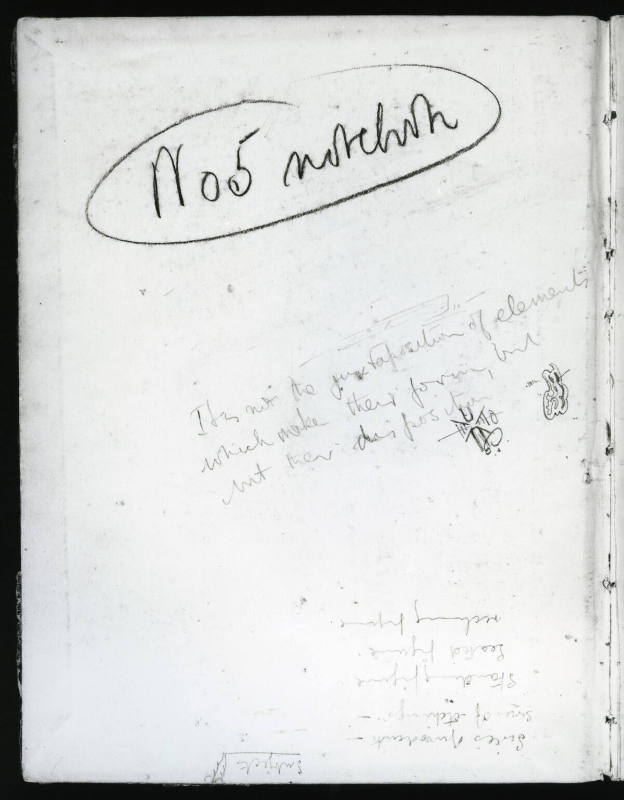 No5 notebook
It is not the juxtaposition of elements
which make their form, but
but their disposition
Subjects for
Series of woodcuts -
series of etchings -
Standing figure
Seated figure.
reclining figure